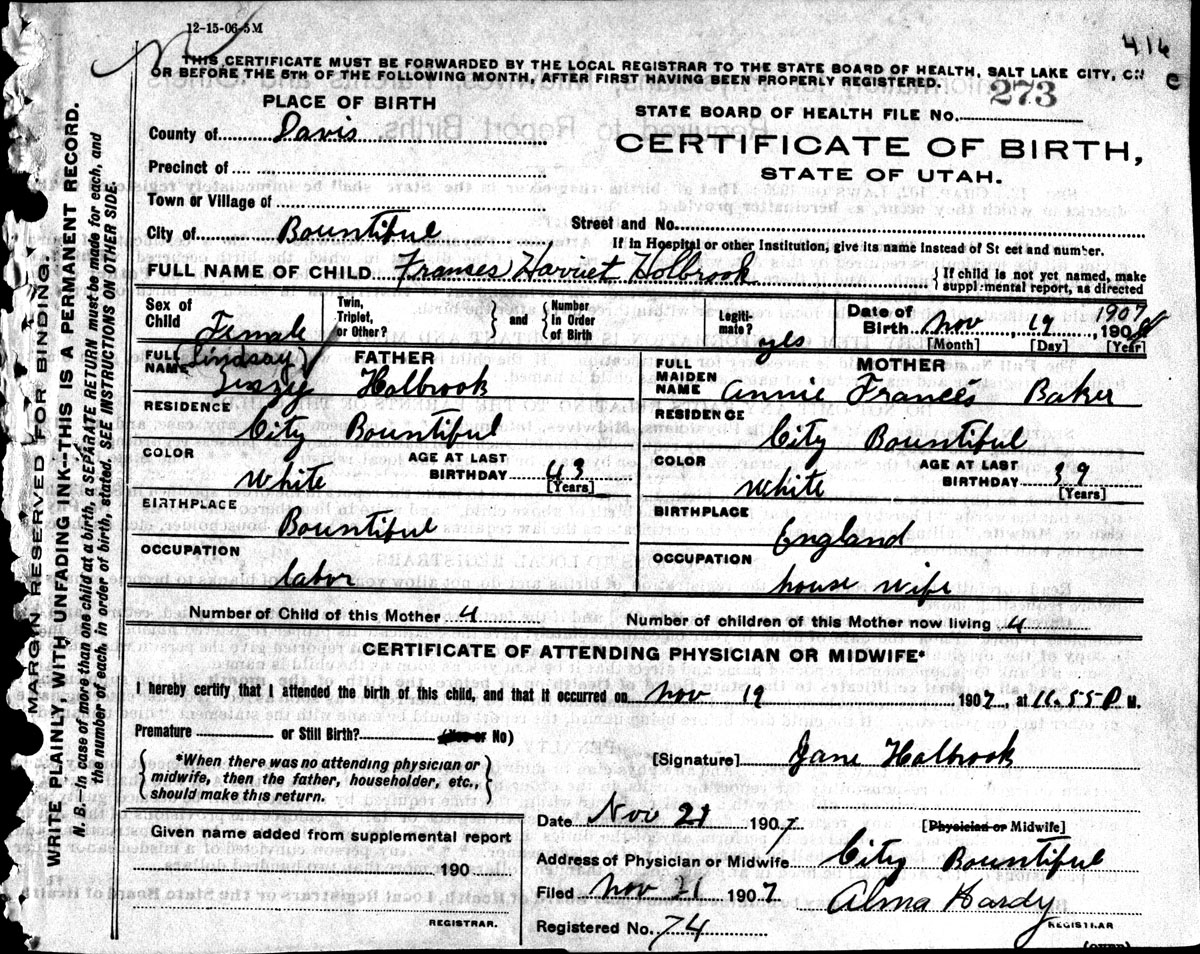 12-15-06-5M
416
THIS CERTIFICATE MUST BE FORWARDED BY THE LOCAL REGISTRAR TO THE STATE BOARD OF HEALTH, SALT LAKE CITY, ON
OR BEFORE THE 5TH OF THE FOLLOWING MONTH, AFTER FIRST HAVING BEEN PROPERLY REGISTERED.
PLACE OF BIRTH
STATE BOARD OF HEALTH FILE No. 273
County of Davis
CERTIFICATE OF BIRTH,
STATE OF UTAH.
Precinct of
Town or Village of
Street and No.
City of Bountiful
If in Hospital or other Institution, give its name instead of St eet and number.
FULL NAME OF CHILD Franses Harriet Holbrook
If child is not yet named, make supplemental report, as directed
Sex of Child Female
Twin, Triplet, or Other?
and
Number in Order of Birth
Legitimate? yes
Date of Birth Nov 19, 1907
[Month] [Day] [Year]
FATHER
FULL NAME (Lindsay) Holbrook
RESIDENCE
City Bountiful
COLOR White
AGE AT LAST BIRTHDAY 43
[Years]
BIRTHPLACE
Bountiful
OCCUPATION
labor
MOTHER
FULL MAIDEN NAME Annie Frances Baker
RESIDENCE
City Bountiful
COLOR White
AGE AT LAST BIRTHDAY 39
[Years]
BIRTHPLACE
England
OCCUPATION
house wife
Number of Child of this Mother 4
Number of children of this Mother now living 4
CERTIFICATE OF ATTENDING PHYSICIAN OR MIDWIFE*
I hereby certify that I attended the birth of this child, and that it occurred on Nov 19 1907, at 11.55 P M.
Premature or Still Birth? (Yes or No)
*When there was no attending physician or
midwife, then the father, householder, etc.,
should make this return.
[Signature] Jane Holbrook
Date Nov 21 1907
[Physician or Midwife]
Given name added from supplemental report
190
REGISTRAR.
Address of Physician or Midwife City Bountiful
Filed Nov 21 1907 Alma Hardy
REGISTRAR
Registered No. 74
(OVER)
MARGIN RESERVED FOR BINDING.
WRITE PLAINLY, WITH UNFADING INK--THIS IS A PERMANENT RECORD.
N. B.—In case of more than one child at a birth, a SEPARATE RETURN must be made for each, and
the number of each, in order of birth, stated. SEE INSTRUCTIONS ON OTHER SIDE.